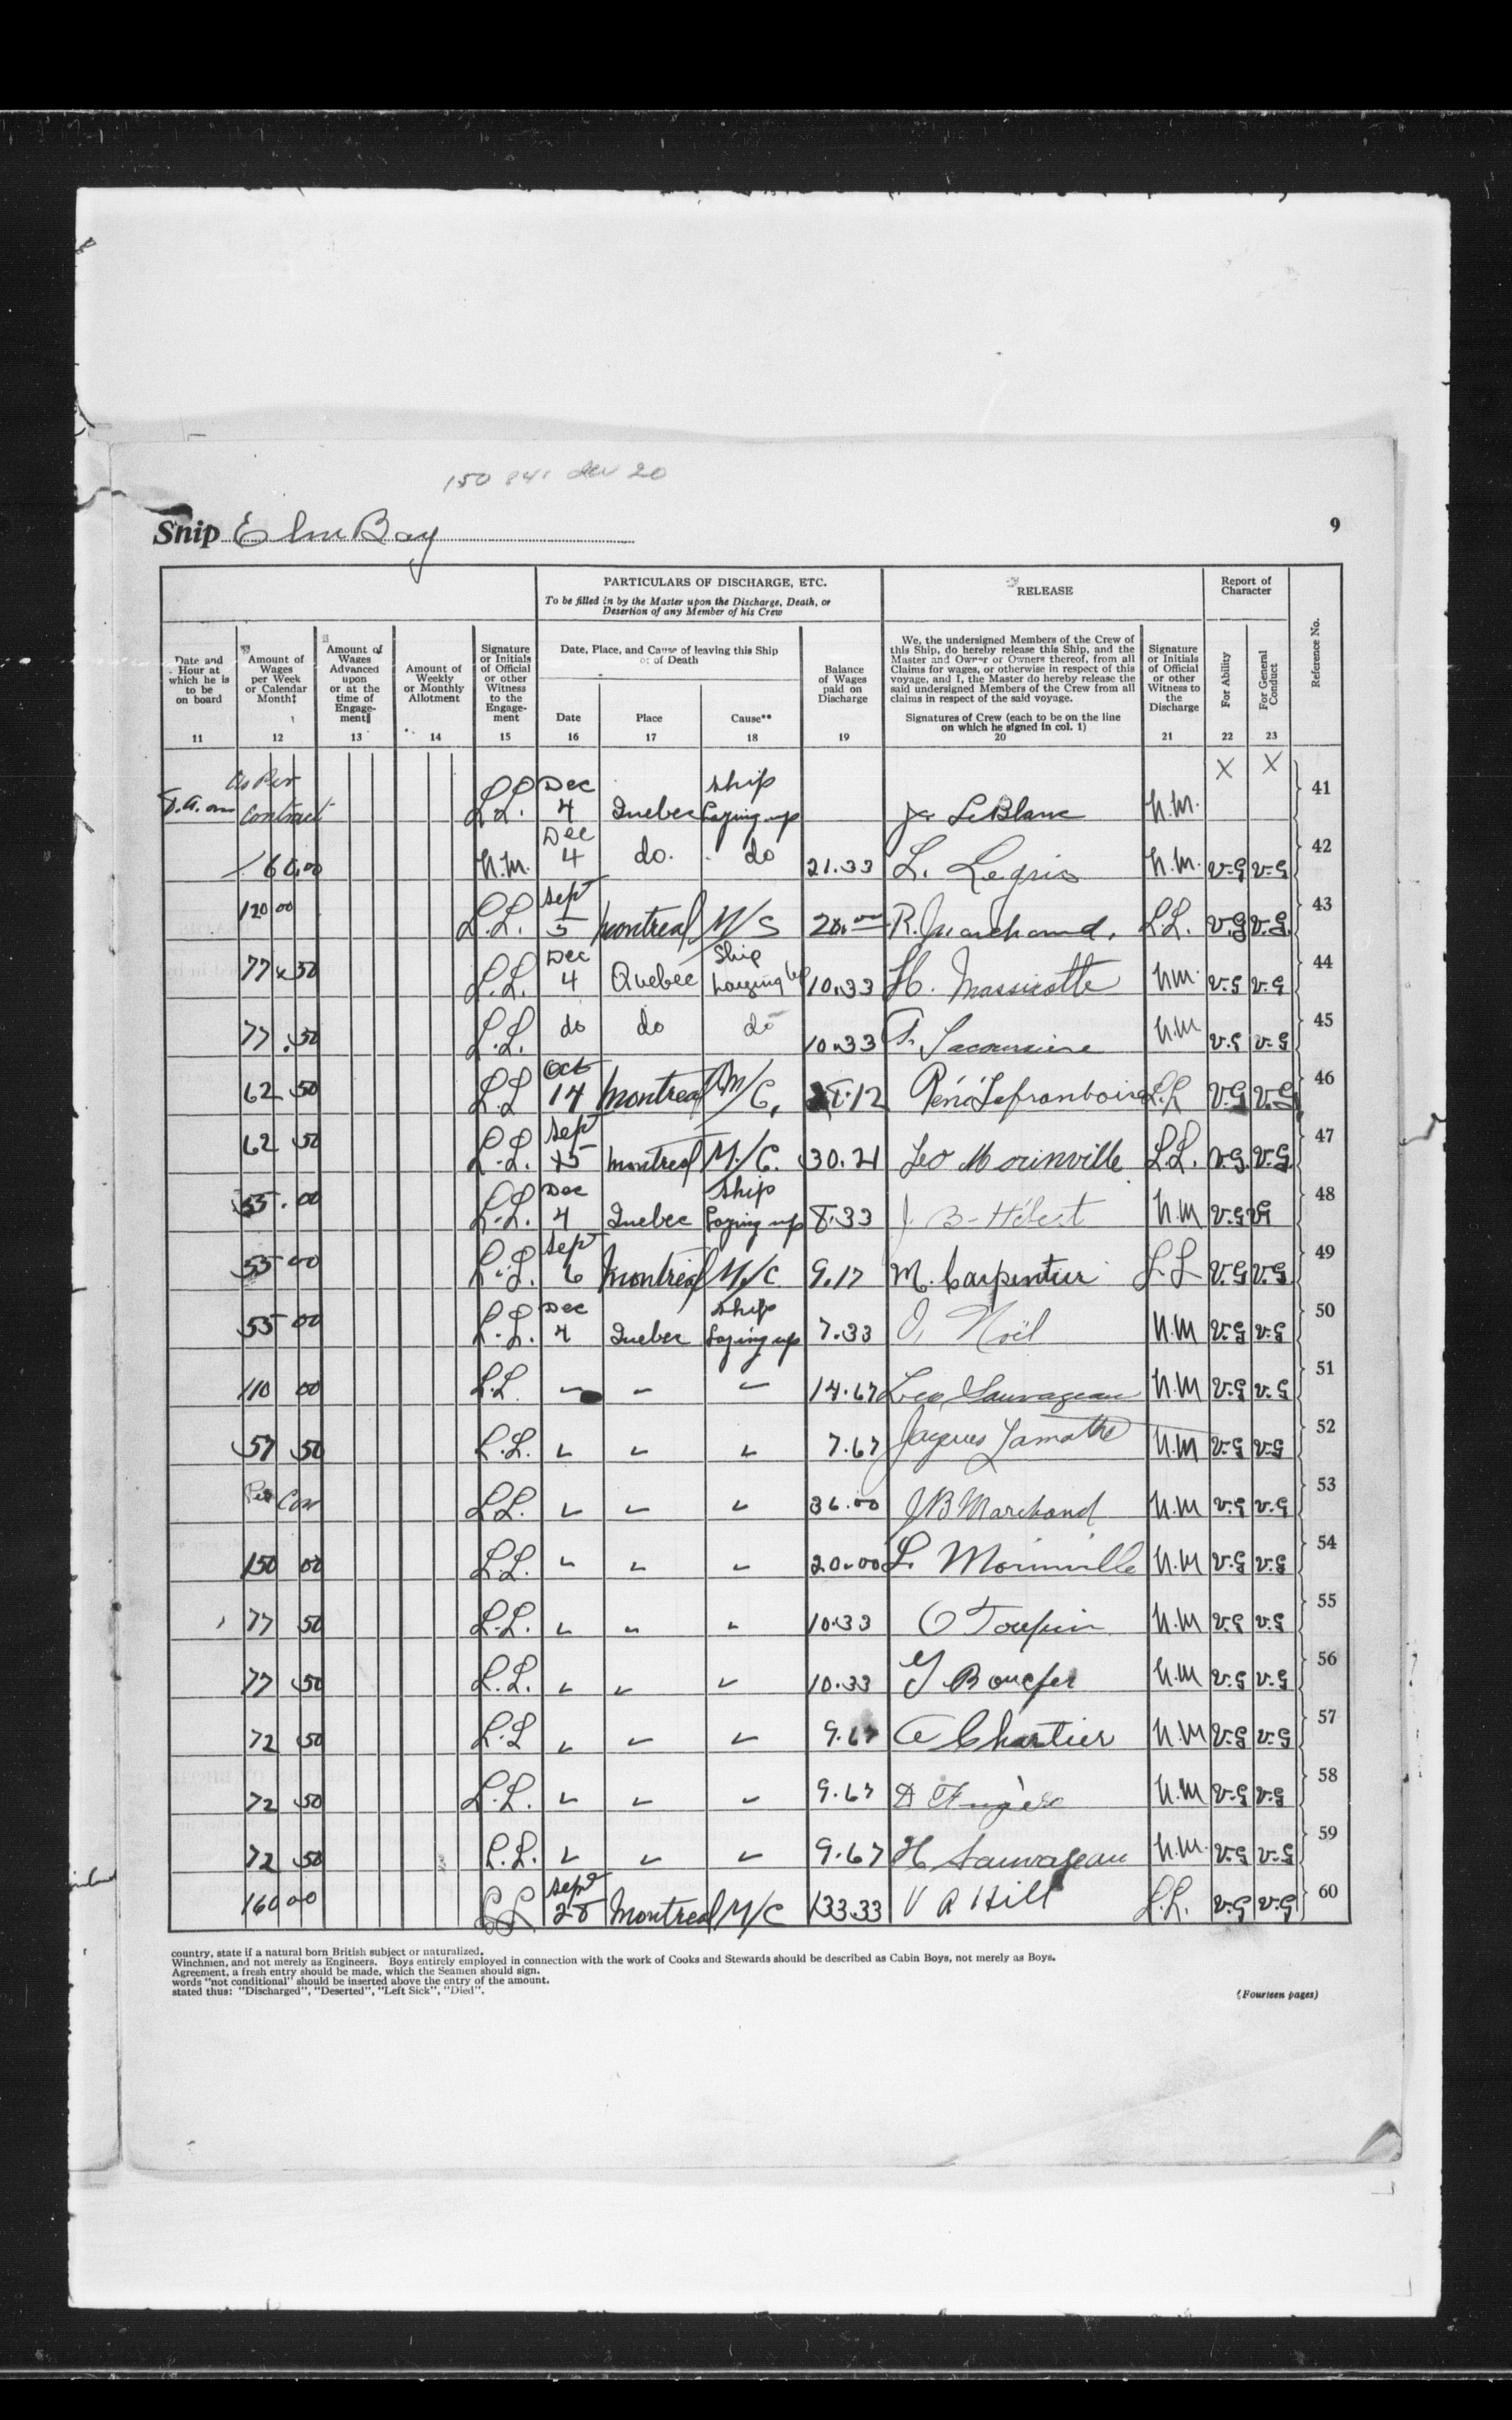 150 841 dec 20
Ship Elm Bay
9
PARTICULARS OF DISCHARGE, ETC.
To be filled in by the Master upon the Discharge, Death, or
Desertion of any Member of his Crew
RELEASE
Report of
Character
Reference No.
Date and
Hour at
which he is
to be
on board
Amount of
Wages
per Week
or Calendar
Month‡
Amount of
Wages
Advanced
upon
or at the
time of
Engage-
ment‖
Amount of
Weekly
or Monthly
Allotment
Signature
or Initials
of Official
or other
Witness
to the
Engage-
ment
Date, Place, and Cause of leaving this Ship
or of Death
Date Place Cause**
Balance
of Wages
paid on
Discharge
We, the undersigned Members of the Crew of
this Ship, do hereby release this Ship, and the
Master and Owner or Owners thereof, from all
Claims for wages, or otherwise in respect of this
voyage, and I, the Master do hereby release the
said undersigned Members of the Crew from all
claims in respect of the said voyage.
Signatures of Crew (each to be on the line
on which he signed in col. 1)
Signature
or Initials
of Official
or other
Witness to
the
Discharge
For Ability
For General
Conduct
11 12 13 14 15 16 17 18 19 20 21 22 23
As Per Contract L.L. Dec 4 Quebec Ship Laying up LeBlanc N.M. X X 41
60.00 N.M. Dec 4 do. do 21.33 L. Legris N.M. V.G V.G 42
120 00 L.L. Sept 5 Montreal M/S R. Marchand. L.L. V.G V.G. 43
77 50 L.L. Dec 4 Quebec Ship Laying up 10.33 H. Massicotte N.M. V.G V.G 44
77.50 L.L. do do do 10.33 Lacoursiere N.M V.G V.G 45
62 50 L.L Oct 14 Montreal M/C, Réné Laframboise L.L V.G V.G 46
62 50 L.L. Sept 15 Montreal M/C. 30.21 Leo Morinville L.L. V.G. V.G. 47
55.00 L.L. Dec 4 Quebec Ship Laying up 8.33 J. B- Hébert N.M V.G V.G 48
55 00 L.L. Sept 6 Montreal M/C 9.17 M. Carpentier L.L V.G V.G 49
55 00 L.L. Dec 4 Quebec Ship Laying up 7.33 Noël N.M V.G V.G 50
110 00 L.L. 14.67 Leo Sauvageau N.M V.G V.G 51
57 50 L.L. " " " 7.67 Jacques Lamothe N.M V.G V.G 52
Per Con L.L. " " " 36.00 J B Marchand N.M V.G V.G 53
150 00 L.L. " " " 20.00 L. Morinville N.M V.G V.G 54
77 50 L.L. " " " 10.33 O Toupin N.M V.G V.G 55
77 50 L.L. " " " 10.33 N.M V.G V.G 56
72 50 L.L " " " 9.67 A Chartier N.M V.G V.G 57
72 50 L.L. " " " 9.67 N.M V.G V.G 58
72 50 L.L. " " " 9.67 H Sauvageau N.M. V.G V.G 59
160 00 L.L Sept 28 Montreal M/C 133.33 V A Hill L.L. V.G V.G 60
country, state if a natural born British subject or naturalized.
Winchmen, and not merely as Engineers. Boys entirely employed in connection with the work of Cooks and Stewards should be described as Cabin Boys, not merely as Boys.
Agreement, a fresh entry should be made, which the Seamen should sign.
words "not conditional" should be inserted above the entry of the amount.
stated thus: "Discharged", "Deserted", "Left Sick", "Died".
(Fourteen pages)